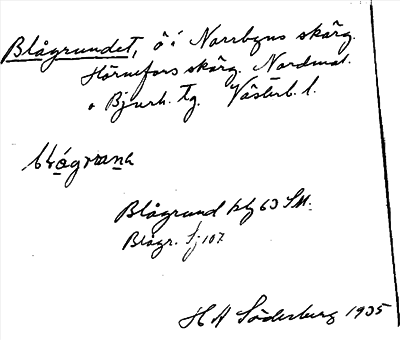 Blågrundet, ö i Norrbyns skärg.
Hörnefors skärg. Nordmal.
o Bjurh. Tg. Västerb. l.
Blågrund kbg 63 SM.
Blågr. Sj 107
H A Söderburg 1935